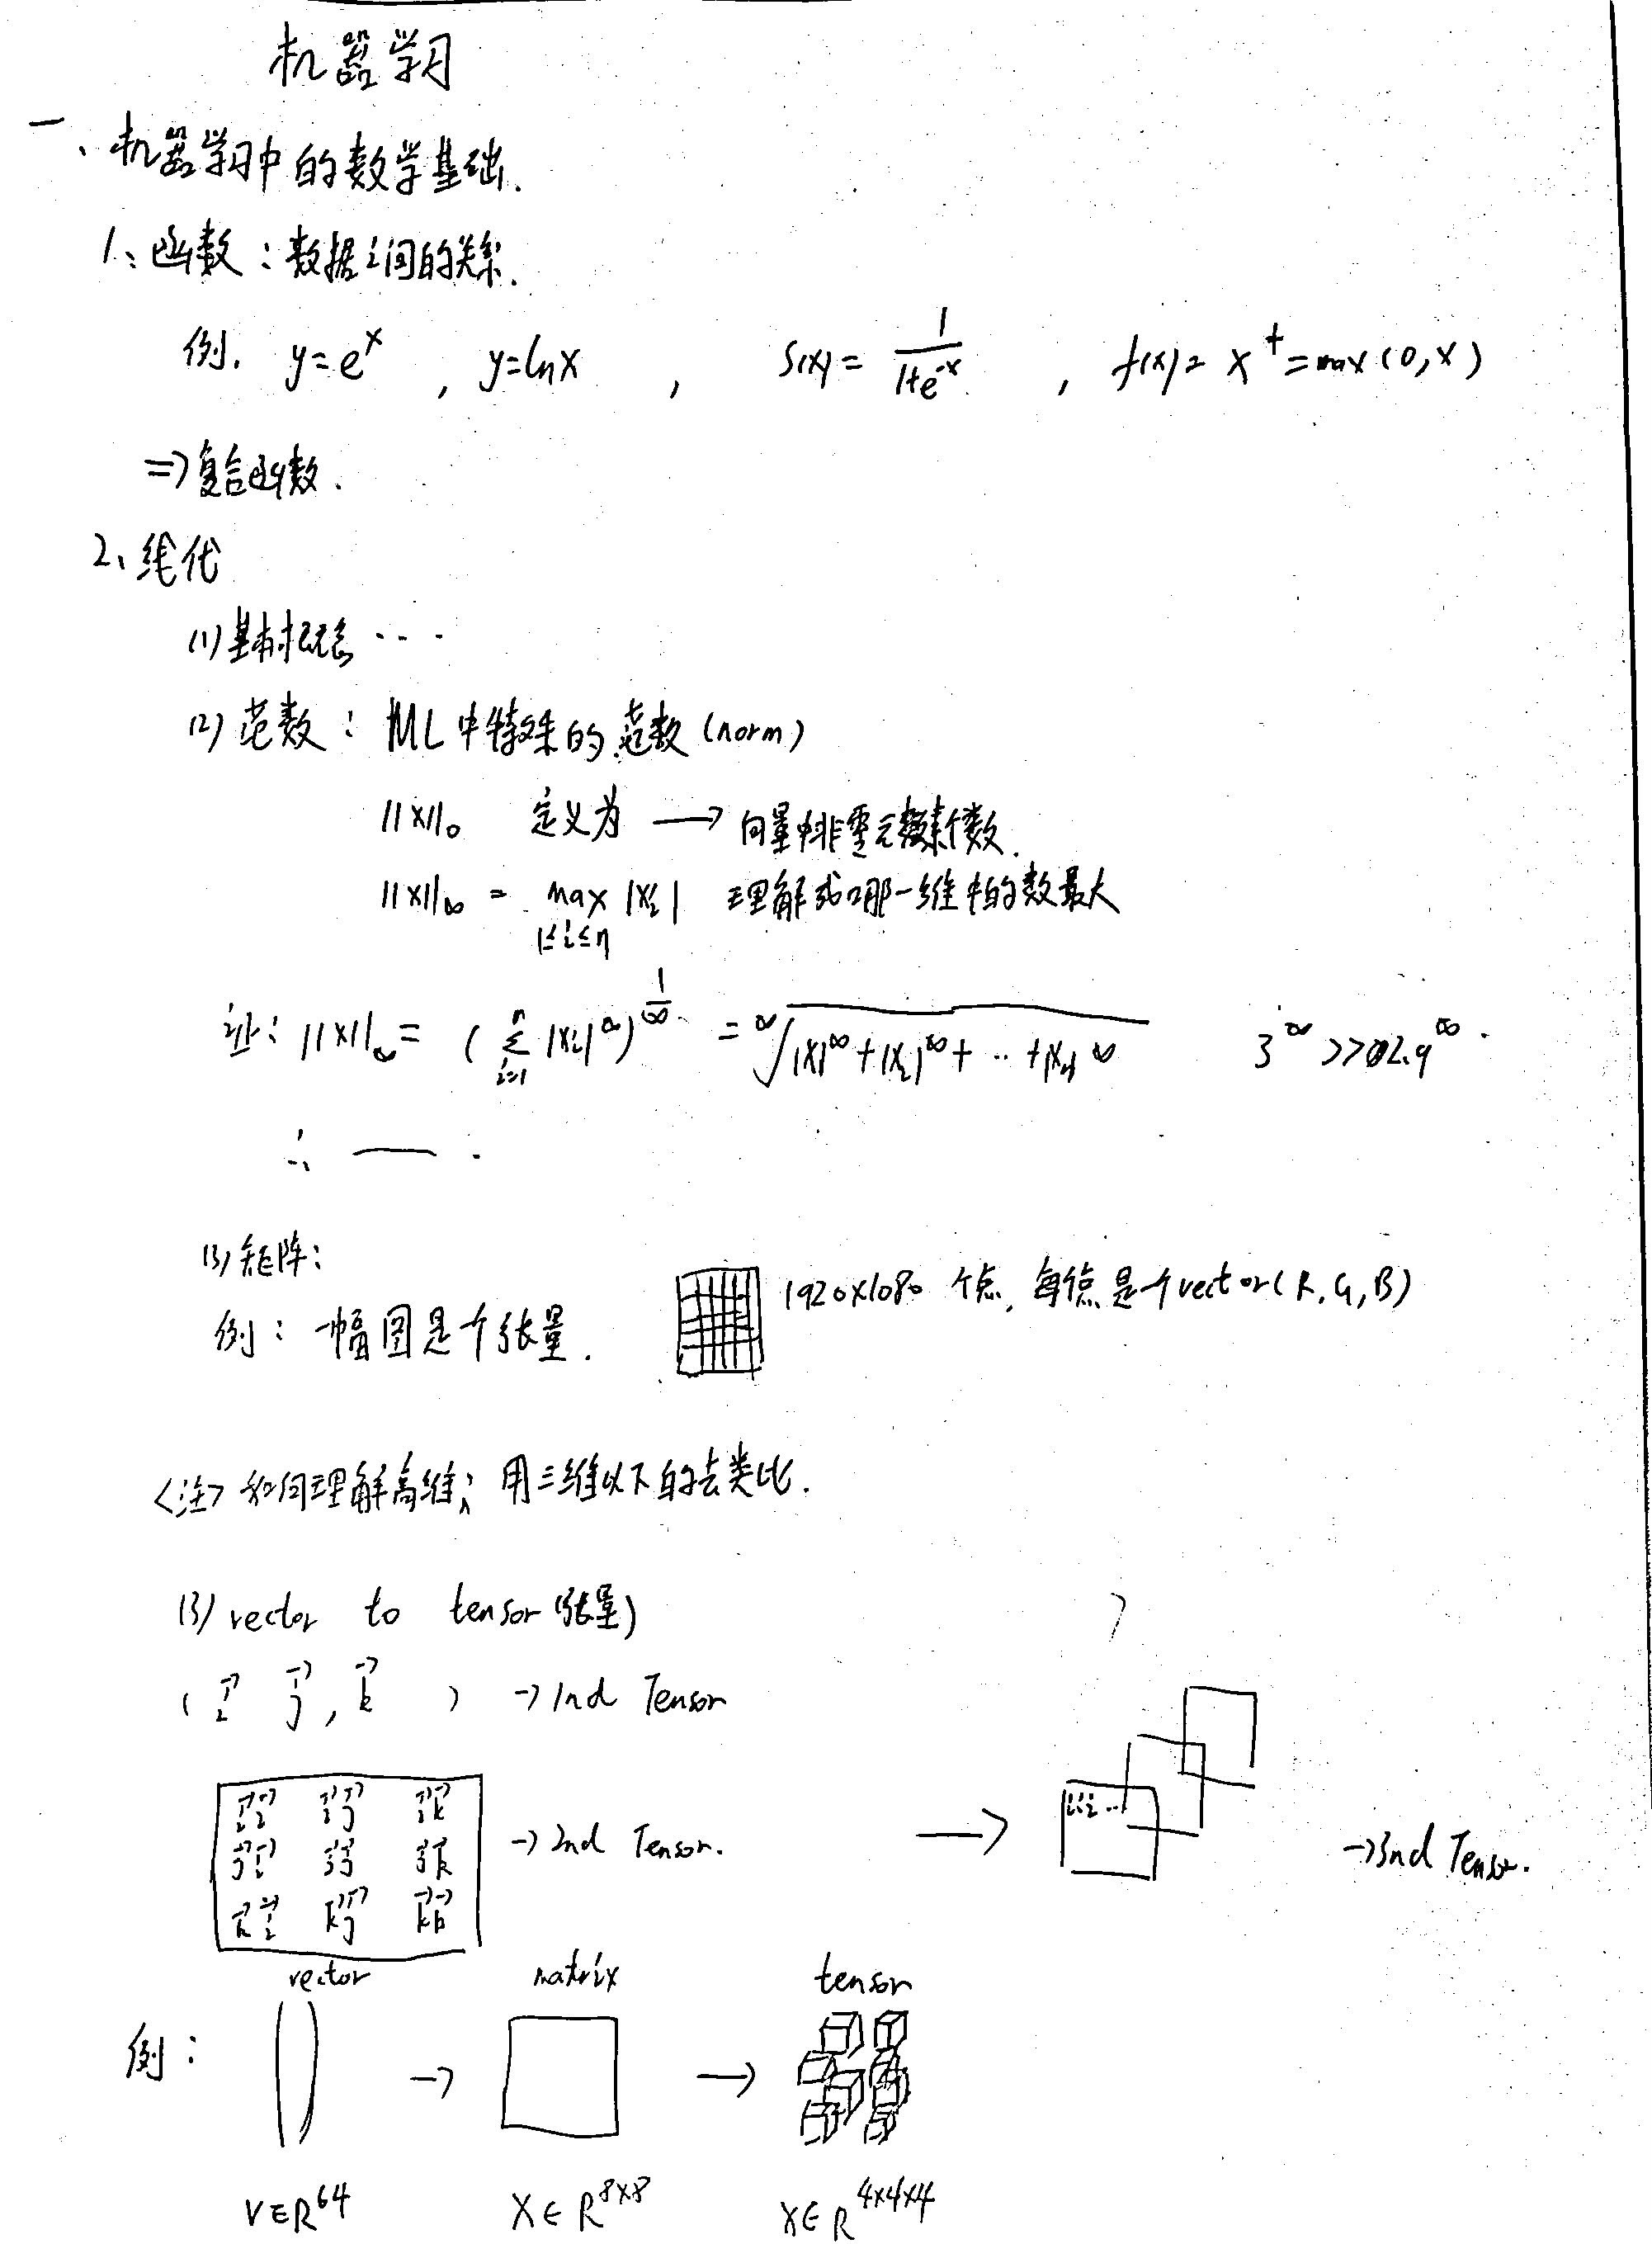 机器学习
一、机器学习中的数学基础.
1、函数：数据之间的关系.
例. y=e^x , y=lnx , S(x)= 1/(1+e^-x) , f(x)= x^+ =max(0,x)
=>复合函数.
2、线代
(1)基本概念 ....
(2)范数：ML中特殊的范数(norm)
||x||₀ 定义为 → 向量中非零元素个数.
||x||∞ = max |xi| 理解成哪一维中的数最大
1≤i≤n
证: ||x||∞ = (Σ_{i=1}^n |xi|^∞)^{1/∞} = ∞√(|x|^∞+|x₂|^∞+ .. +|xₙ|^∞) 3^∞ >> 2.9^∞.
∴ — .
(3)矩阵:
例：一幅图是个张量. 1920x1080 个点, 每个点是个vector(R,G,B)
<注> 如何理解高维; 用三维以下的去类比.
(3) vector to tensor(张量)
( i⃗ j⃗, k⃗ ) → 1nd Tensor
i⃗i⃗ i⃗j⃗ i⃗k⃗
j⃗i⃗ j⃗j⃗ j⃗k⃗ → 2nd Tensor. → iii ... → 3nd Tensor.
k⃗i⃗ k⃗j⃗ k⃗k⃗
vector matrix tensor
例： → →
V∈R^64 X∈R^8x8 X∈R^4x4x4